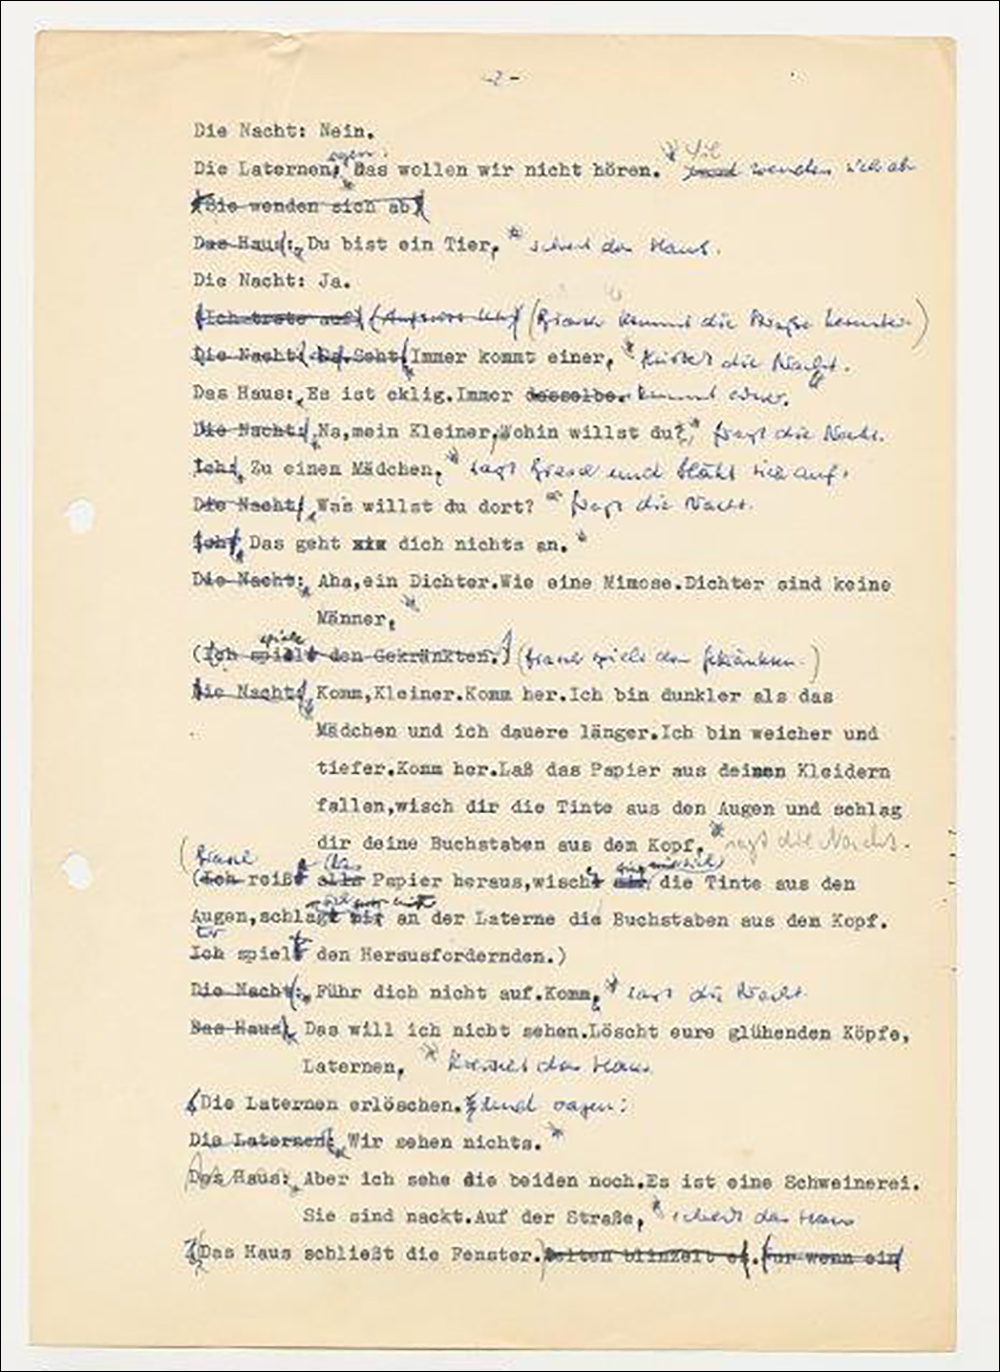 -2-
Die Nacht: Nein.
Die Laternen: sagen: Das wollen wir nicht hören. und wenden sich ab
(Sie wenden sich ab)
Das Haus: Du bist ein Tier, schreit das Haus.
Die Nacht: Ja.
(Ich trete auf) (kommt die Straße herunter)
Die Nacht: Da. Seht. Immer kommt einer, flüstert die Nacht.
Das Haus: Es ist eklig.Immer dasselbe. kommt einer.
Die Nacht: Na,mein Kleiner,Wohin willst du?, fragt die Nacht.
Ich: Zu einem Mädchen, sagt und bläht sich auf.
Die Nacht: Was willst du dort? fragt die Nacht.
Ich: Das geht xix dich nichts an.
Die Nacht: Aha,ein Dichter.Wie eine Mimose.Dichter sind keine
Männer,
(Ich spiele den Gekränkten.) (spielt den Gekränkten.)
Die Nacht: Komm,Kleiner.Komm her.Ich bin dunkler als das
Mädchen und ich dauere länger.Ich bin weicher und
tiefer.Komm her.Laß das Papier aus deinen Kleidern
fallen,wisch dir die Tinte aus den Augen und schlag
dir deine Buchstaben aus dem Kopf, sagt die Nacht.
(Ich reißt alle das Papier heraus,wischt mir die Tinte aus den
Augen,schlagt mir an der Laterne die Buchstaben aus dem Kopf.
Er
Ich spielt den Herausfordernden.)
Die Nacht: Führ dich nicht auf.Komm, sagt die Nacht.
Das Haus: Das will ich nicht sehen.Löscht eure glühenden Köpfe,
Laternen, das Haus
(Die Laternen erlöschen. und sagen:
Die Laternen: Wir sehen nichts.
Das Haus: Aber ich sehe die beiden noch.Es ist eine Schweinerei.
Sie sind nackt.Auf der Straße, schreit das Haus
(Das Haus schließt die Fenster.) Selten blinzelt es. Nur wenn ein